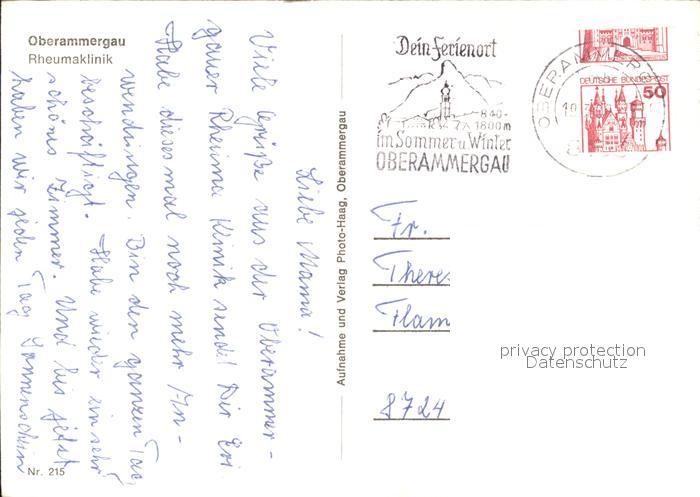 Oberammergau
Rheumaklinik
Liebe Mama!
Viele Grüße aus der Oberammer-
gauer Rheuma Klinik sendet Dir Evi
Habe dieses mal noch mehr An-
wendungen. Bin den ganzen Tag
beschäftigt. Habe wieder ein sehr
schönes Zimmer. Und bis jetzt
haben wir jeden Tag Sonnenschein
Nr. 215
Aufnahme und Verlag Photo-Haag, Oberammergau
Dein Ferienort
840-
1800m
im Sommer u. Winter
OBERAMMERGAU
OBERAMMER
DEUTSCHE BUNDESPOST
50
Fr.
There
Flam
8724
privacy protection
Datenschutz